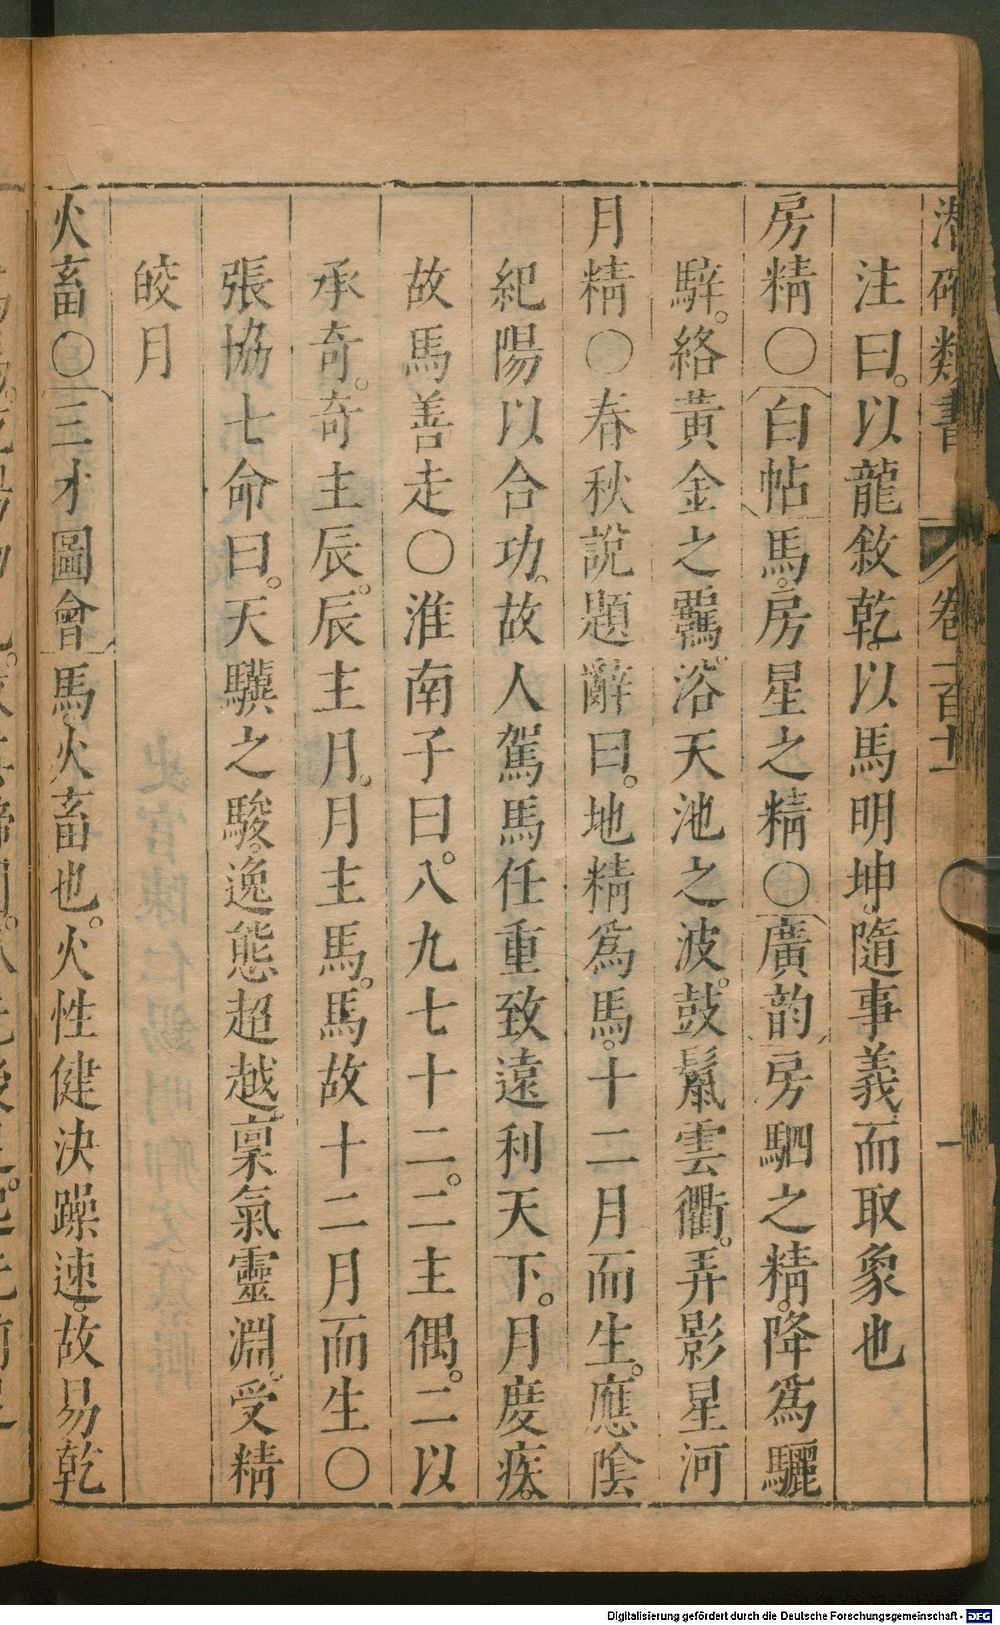 潛確類書 卷一百十一 一
注曰。以龍敘乾。以馬明坤。隨事義而取象也
房精〇白帖馬。房星之精〇廣韵房駟之精。降爲驪
騂。絡黃金之羈。浴天池之波。鼓鬣雲衢。弄影星河
月精〇春秋說題辭曰。地精爲馬。十二月而生。應陰
紀陽以合功。故人駕馬任重致遠利天下。月度疾。
故馬善走〇淮南子曰。八九七十二。二主偶。二以
承奇。奇主辰。辰主月。月主馬。馬故十二月而生〇
張協七命曰。天驥之駿。逸態超越。稟氣靈淵。受精
皎月
火畜〇三才圖會馬。火畜也。火性健決躁速。故易乾
Digitalisierung gefördert durch die Deutsche Forschungsgemeinschaft - DFG